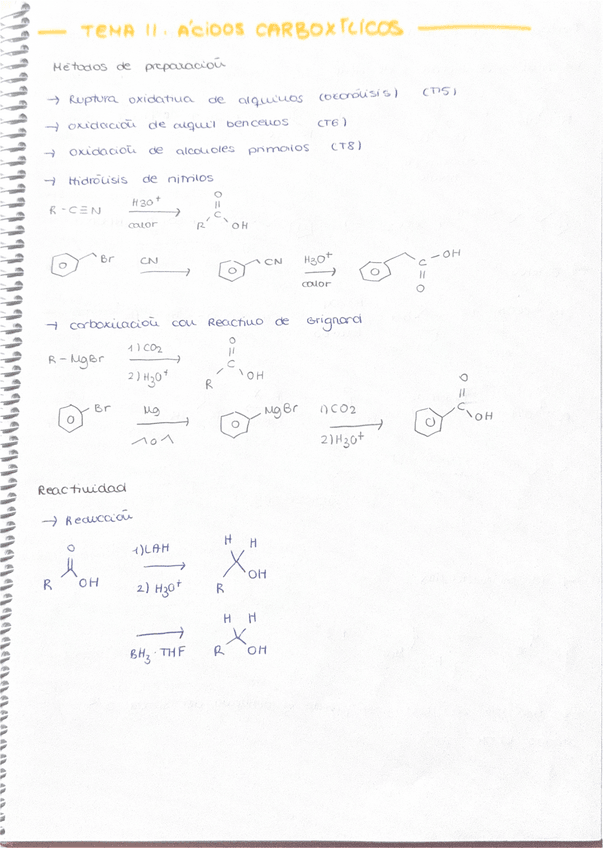 TEMA 11. ÁCIDOS CARBOXÍLICOS
Métodos de preparación
→ Ruptura oxidativa de alquinos (ozonólisis) (T15)
→ oxidación de alquil bencenos (T6)
→ oxidación de alcoholes primarios (T8)
→ Hidrólisis de nitrilos
R-C≡N H3O+ calor O R C OH
Br CN CN H3O+ calor C OH O
→ carboxilación con Reactivo de Grignard
R-MgBr 1) CO2 2) H3O+ O R C OH
Br Mg O MgBr 1) CO2 2) H3O+ O C OH
Reactividad
→ Reducción
O R OH 1) LAH 2) H3O+ H H R OH
BH3·THF H H R OH